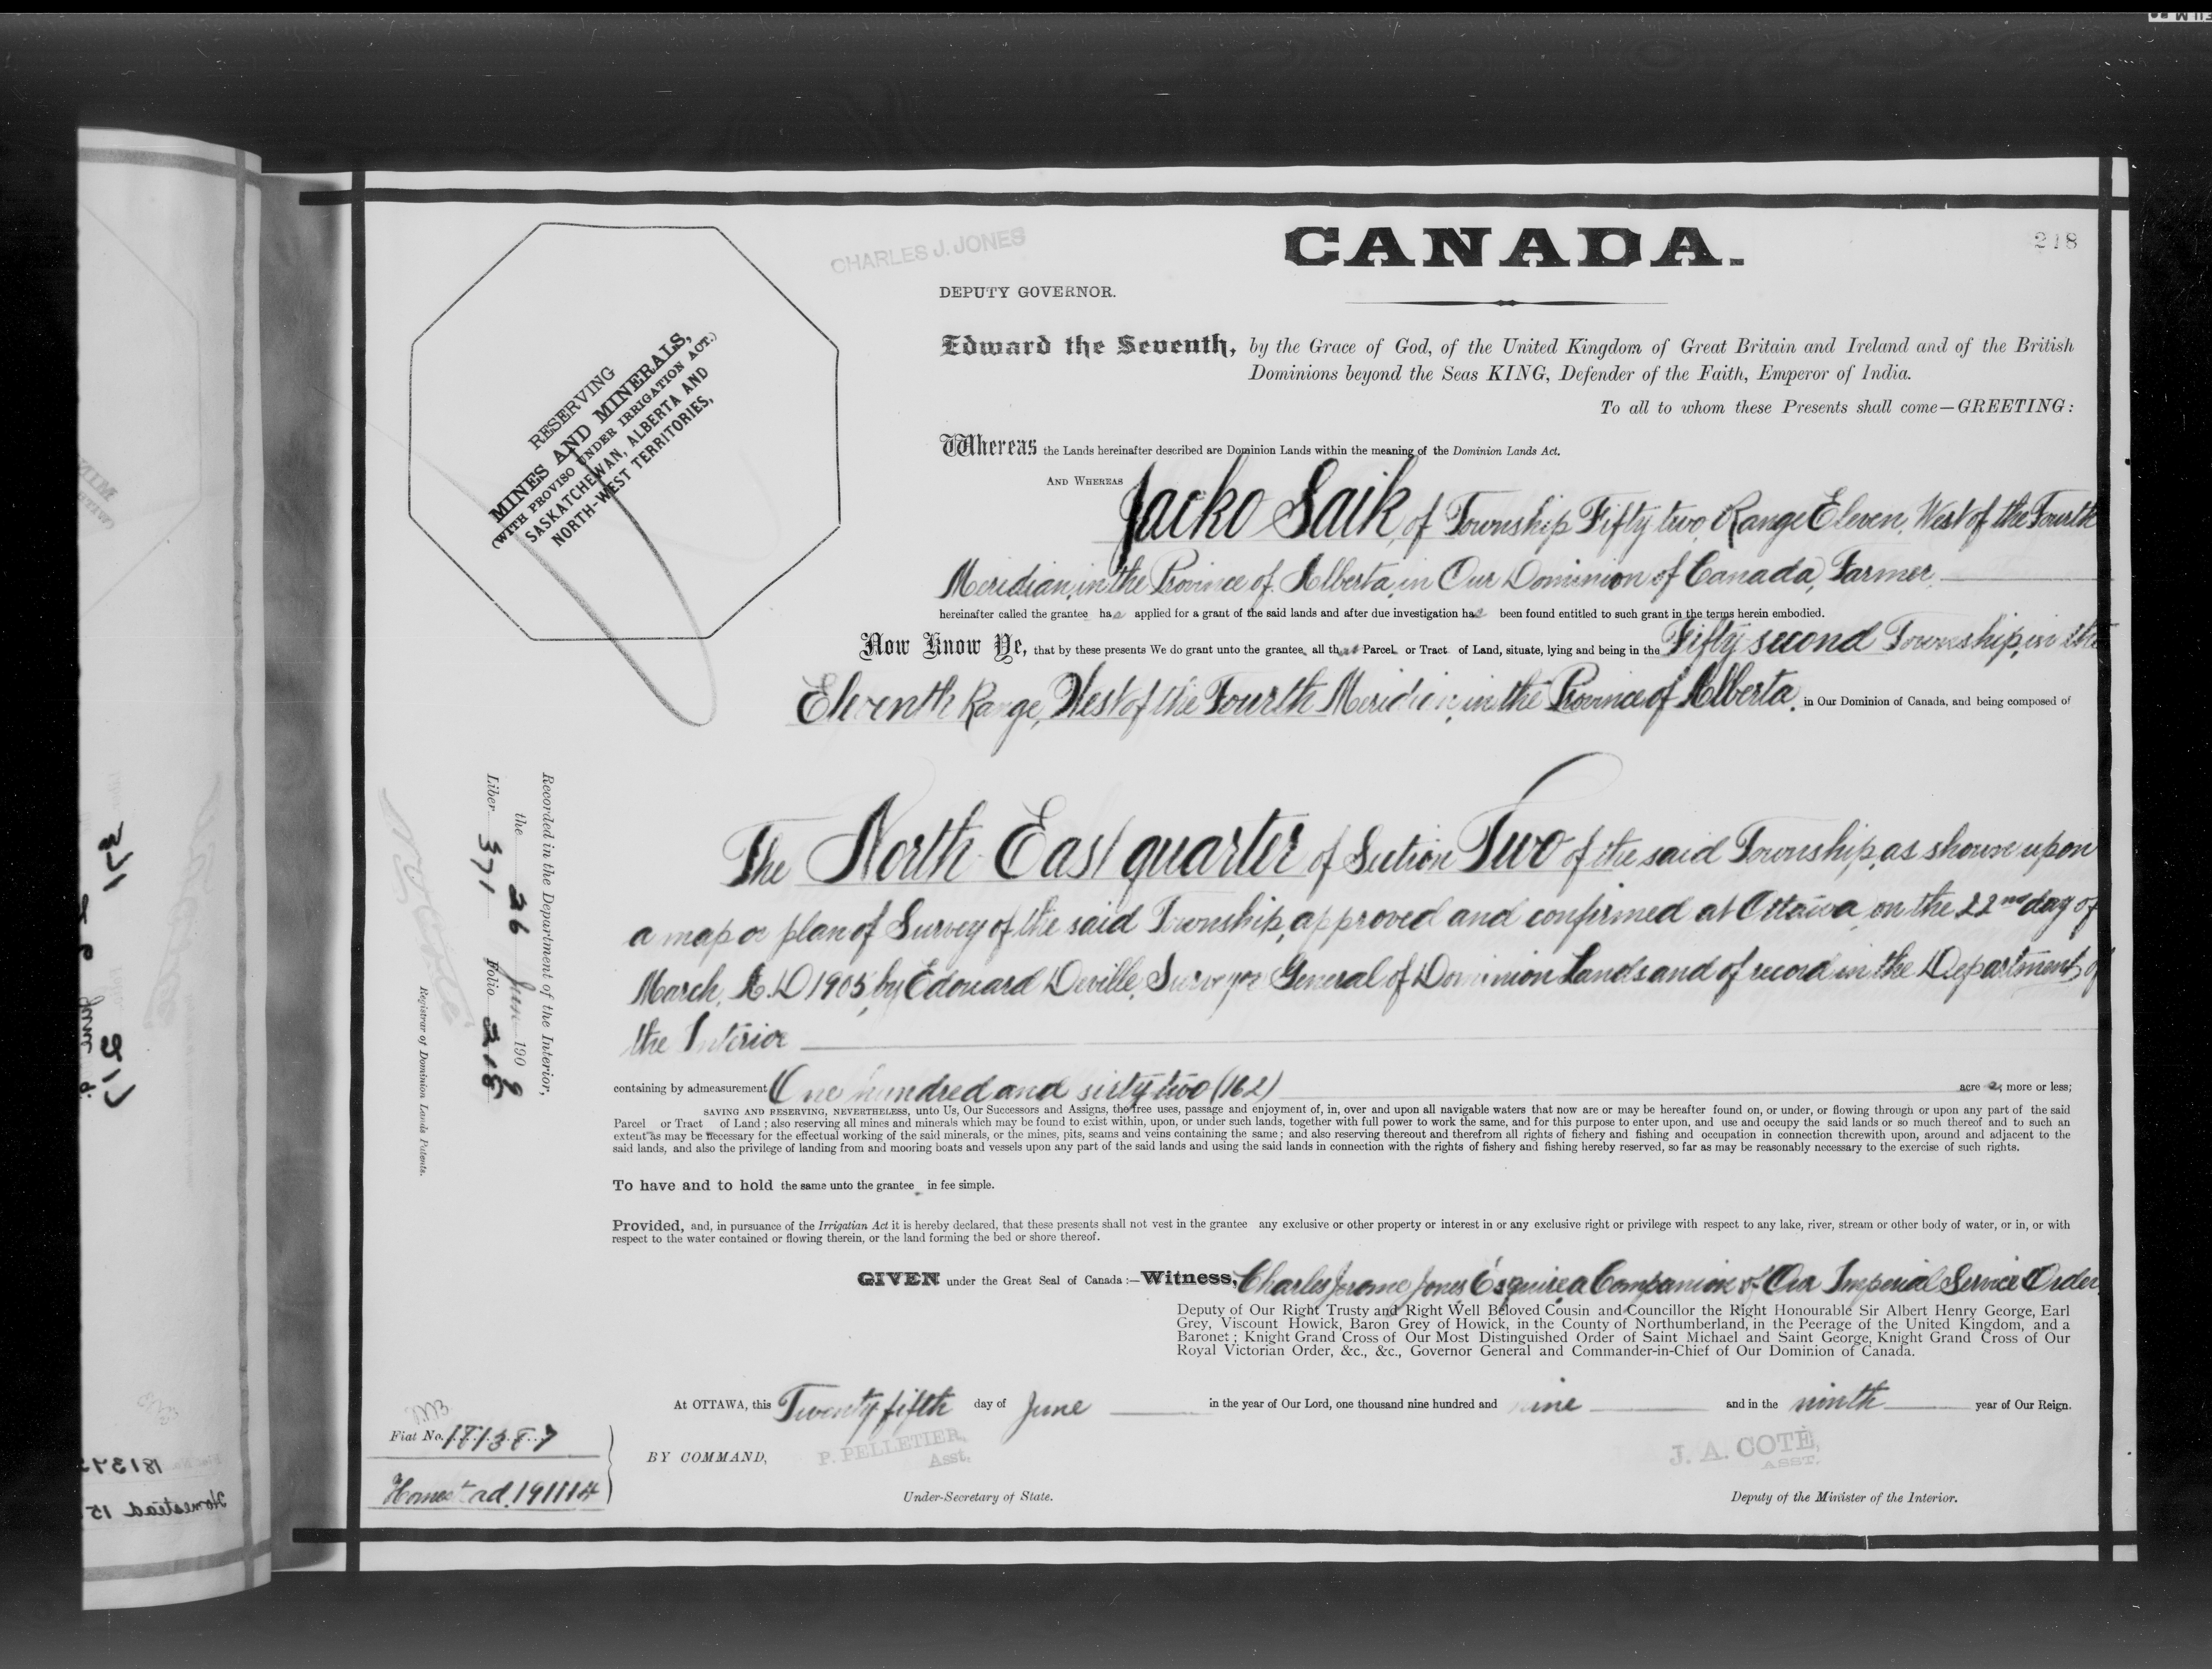 CANADA.
218
CHARLES J. JONES
DEPUTY GOVERNOR.
RESERVING
MINES AND MINERALS,
(WITH PROVISO UNDER IRRIGATION ACT.)
SASKATCHEWAN, ALBERTA AND
NORTH-WEST TERRITORIES,
Edward the Seventh, by the Grace of God, of the United Kingdom of Great Britain and Ireland and of the British
Dominions beyond the Seas KING, Defender of the Faith, Emperor of India.
To all to whom these Presents shall come—GREETING:
Whereas the Lands hereinafter described are Dominion Lands within the meaning of the Dominion Lands Act.
AND WHEREAS Jacko Saik, of Township Fifty two, Range Eleven, West of the Fourth
Meridian, in the Province of Alberta, in Our Dominion of Canada, Farmer
hereinafter called the grantee has applied for a grant of the said lands and after due investigation has been found entitled to such grant in the terms herein embodied.
Now Know Ye, that by these presents We do grant unto the grantee, all that Parcel or Tract of Land, situate, lying and being in the Fifty second Township, in the
Eleventh Range, West of the Fourth Meridian, in the Province of Alberta, in Our Dominion of Canada, and being composed of
The North East quarter of Section Two of the said Township, as shown upon
a map or plan of Survey of the said Township, approved and confirmed at Ottawa, on the 22nd day of
March, A.D 1905, by Edouard Deville, Surveyor General of Dominion Lands and of record in the Department of
the Interior
containing by admeasurement One hundred and sixty two (162) acres, more or less;
SAVING AND RESERVING, NEVERTHELESS, unto Us, Our Successors and Assigns, the free uses, passage and enjoyment of, in, over and upon all navigable waters that now are or may be hereafter found on, or under, or flowing through or upon any part of the said
Parcel or Tract of Land; also reserving all mines and minerals which may be found to exist within, upon, or under such lands, together with full power to work the same, and for this purpose to enter upon, and use and occupy the said lands or so much thereof and to such an
extent as may be necessary for the effectual working of the said minerals, or the mines, pits, seams and veins containing the same; and also reserving thereout and therefrom all rights of fishery and fishing and occupation in connection therewith upon, around and adjacent to the
said lands, and also the privilege of landing from and mooring boats and vessels upon any part of the said lands and using the said lands in connection with the rights of fishery and fishing hereby reserved, so far as may be reasonably necessary to the exercise of such rights.
To have and to hold the same unto the grantee in fee simple.
Provided, and, in pursuance of the Irrigatian Act it is hereby declared, that these presents shall not vest in the grantee any exclusive or other property or interest in or any exclusive right or privilege with respect to any lake, river, stream or other body of water, or in, or with
respect to the water contained or flowing therein, or the land forming the bed or shore thereof.
GIVEN under the Great Seal of Canada:—Witness, Charles Jerome Jones Esquire a Companion of Our Imperial Service Order
Deputy of Our Right Trusty and Right Well Beloved Cousin and Councillor the Right Honourable Sir Albert Henry George, Earl
Grey, Viscount Howick, Baron Grey of Howick, in the County of Northumberland, in the Peerage of the United Kingdom, and a
Baronet; Knight Grand Cross of Our Most Distinguished Order of Saint Michael and Saint George, Knight Grand Cross of Our
Royal Victorian Order, &c., &c., Governor General and Commander-in-Chief of Our Dominion of Canada.
At OTTAWA, this Twenty fifth day of June in the year of Our Lord, one thousand nine hundred and nine and in the ninth year of Our Reign.
BY COMMAND,
P. PELLETIER,
Asst.
J. A. COTÉ,
ASST.
Under-Secretary of State.
Deputy of the Minister of the Interior.
Recorded in the Department of the Interior,
the 26 Jun 1909
Liber 371 Folio 218
Registrar of Dominion Lands Patents.
Fiat No. 181387
Homestead. 191114